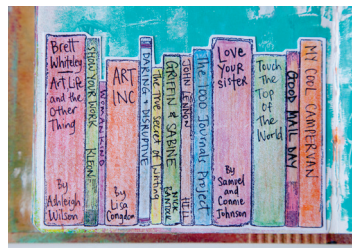 Brett
Whiteley
Art Life
and the
Other
Thing
By
Ashleigh
Wilson
SHOW YOUR WORK
KLEON
WOMANKIND
ART
INC
By
Lisa
Congdon
DARING & DISRUPTIVE
The True Secret of Writing
GRIFFIN & SABINE
NICK BANTOCK
JOHN LENNON
HILL
The 1000 Journals Project
Love
Your
Sister
By
Samuel
and
Connie
Johnson
Touch
The
Top
of
The
World
GOOD MAIL DAY
MY COOL CAMPERVAN